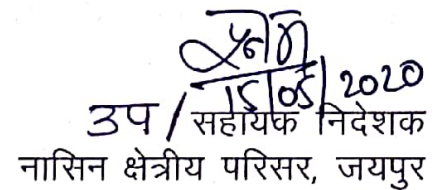 15/05/2020
उप / सहायक निदेशक
नासिन क्षेत्रीय परिसर, जयपुर